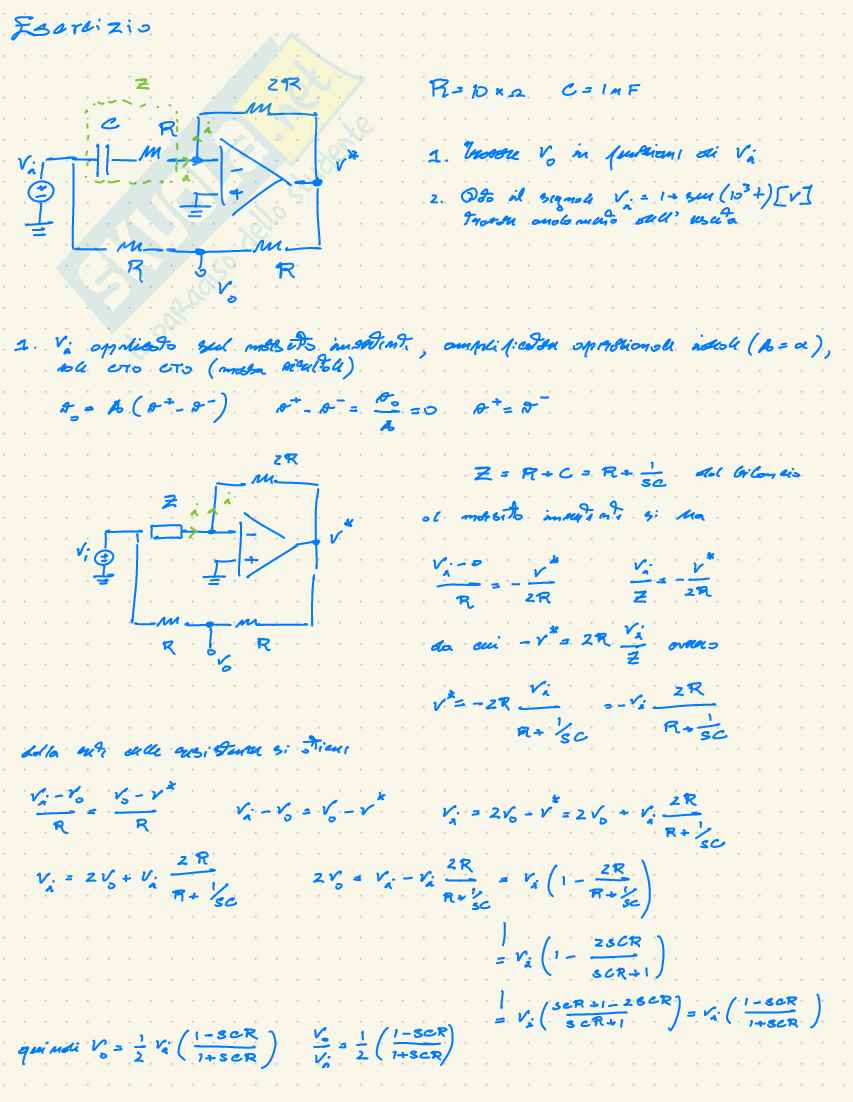 Esercizio
Z
2R
R = 10 KΩ C = 1 nF
C
R
i
i
Vi
V*
-
+
1. Trovare Vo in funzione di Vi
2. Dato il segnale Vi = 1 + sen(10³t) [V]
trovare andamento dell'uscita
R
R
Vo
SKUOLA.net
il paradiso dello studente
1. Vi applicato sul morsetto invertente, amplificatore operazionale ideale (A = ∞),
vale CTO CTO (massa virtuale)
vo = A(v⁺ - v⁻) v⁺ - v⁻ = vo/A = 0 v⁺ = v⁻
2R
Z = R + C = R + 1/SC dal bilancio
Z
i
i
al morsetto invertente si ha
V*
-
+
Vi
(Vi - 0)/R = - V*/2R Vi/Z = - V*/2R
R
R
Vo
da cui -V* = 2R Vi/Z ovvero
V* = -2R Vi/(R + 1/SC) = -Vi 2R/(R + 1/SC)
dalla rete delle resistenze si ottiene
(Vi - Vo)/R = (Vo - V*)/R Vi - Vo = Vo - V* Vi = 2Vo - V* = 2Vo + Vi 2R/(R + 1/SC)
Vi = 2Vo + Vi 2R/(R + 1/SC) 2Vo = Vi - Vi 2R/(R + 1/SC) = Vi (1 - 2R/(R + 1/SC))
= Vi (1 - 2SCR/(SCR+1))
= Vi ((SCR+1-2SCR)/(SCR+1)) = Vi ((1-SCR)/(1+SCR))
quindi Vo = 1/2 Vi ((1-SCR)/(1+SCR)) Vo/Vi = 1/2 ((1-SCR)/(1+SCR))